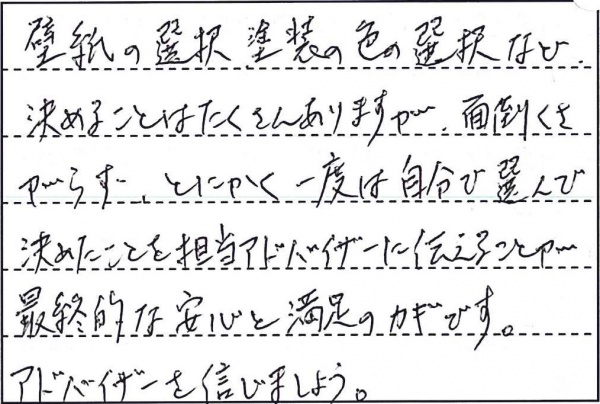 壁紙の選択、塗装の色の選択など、
決めることはたくさんありますが、面倒くさ
がらず、とにかく一度は自分で選んで
決めたことを担当アドバイザーに伝えることが
最終的な安心と満足のカギです。
アドバイザーを信じましょう。